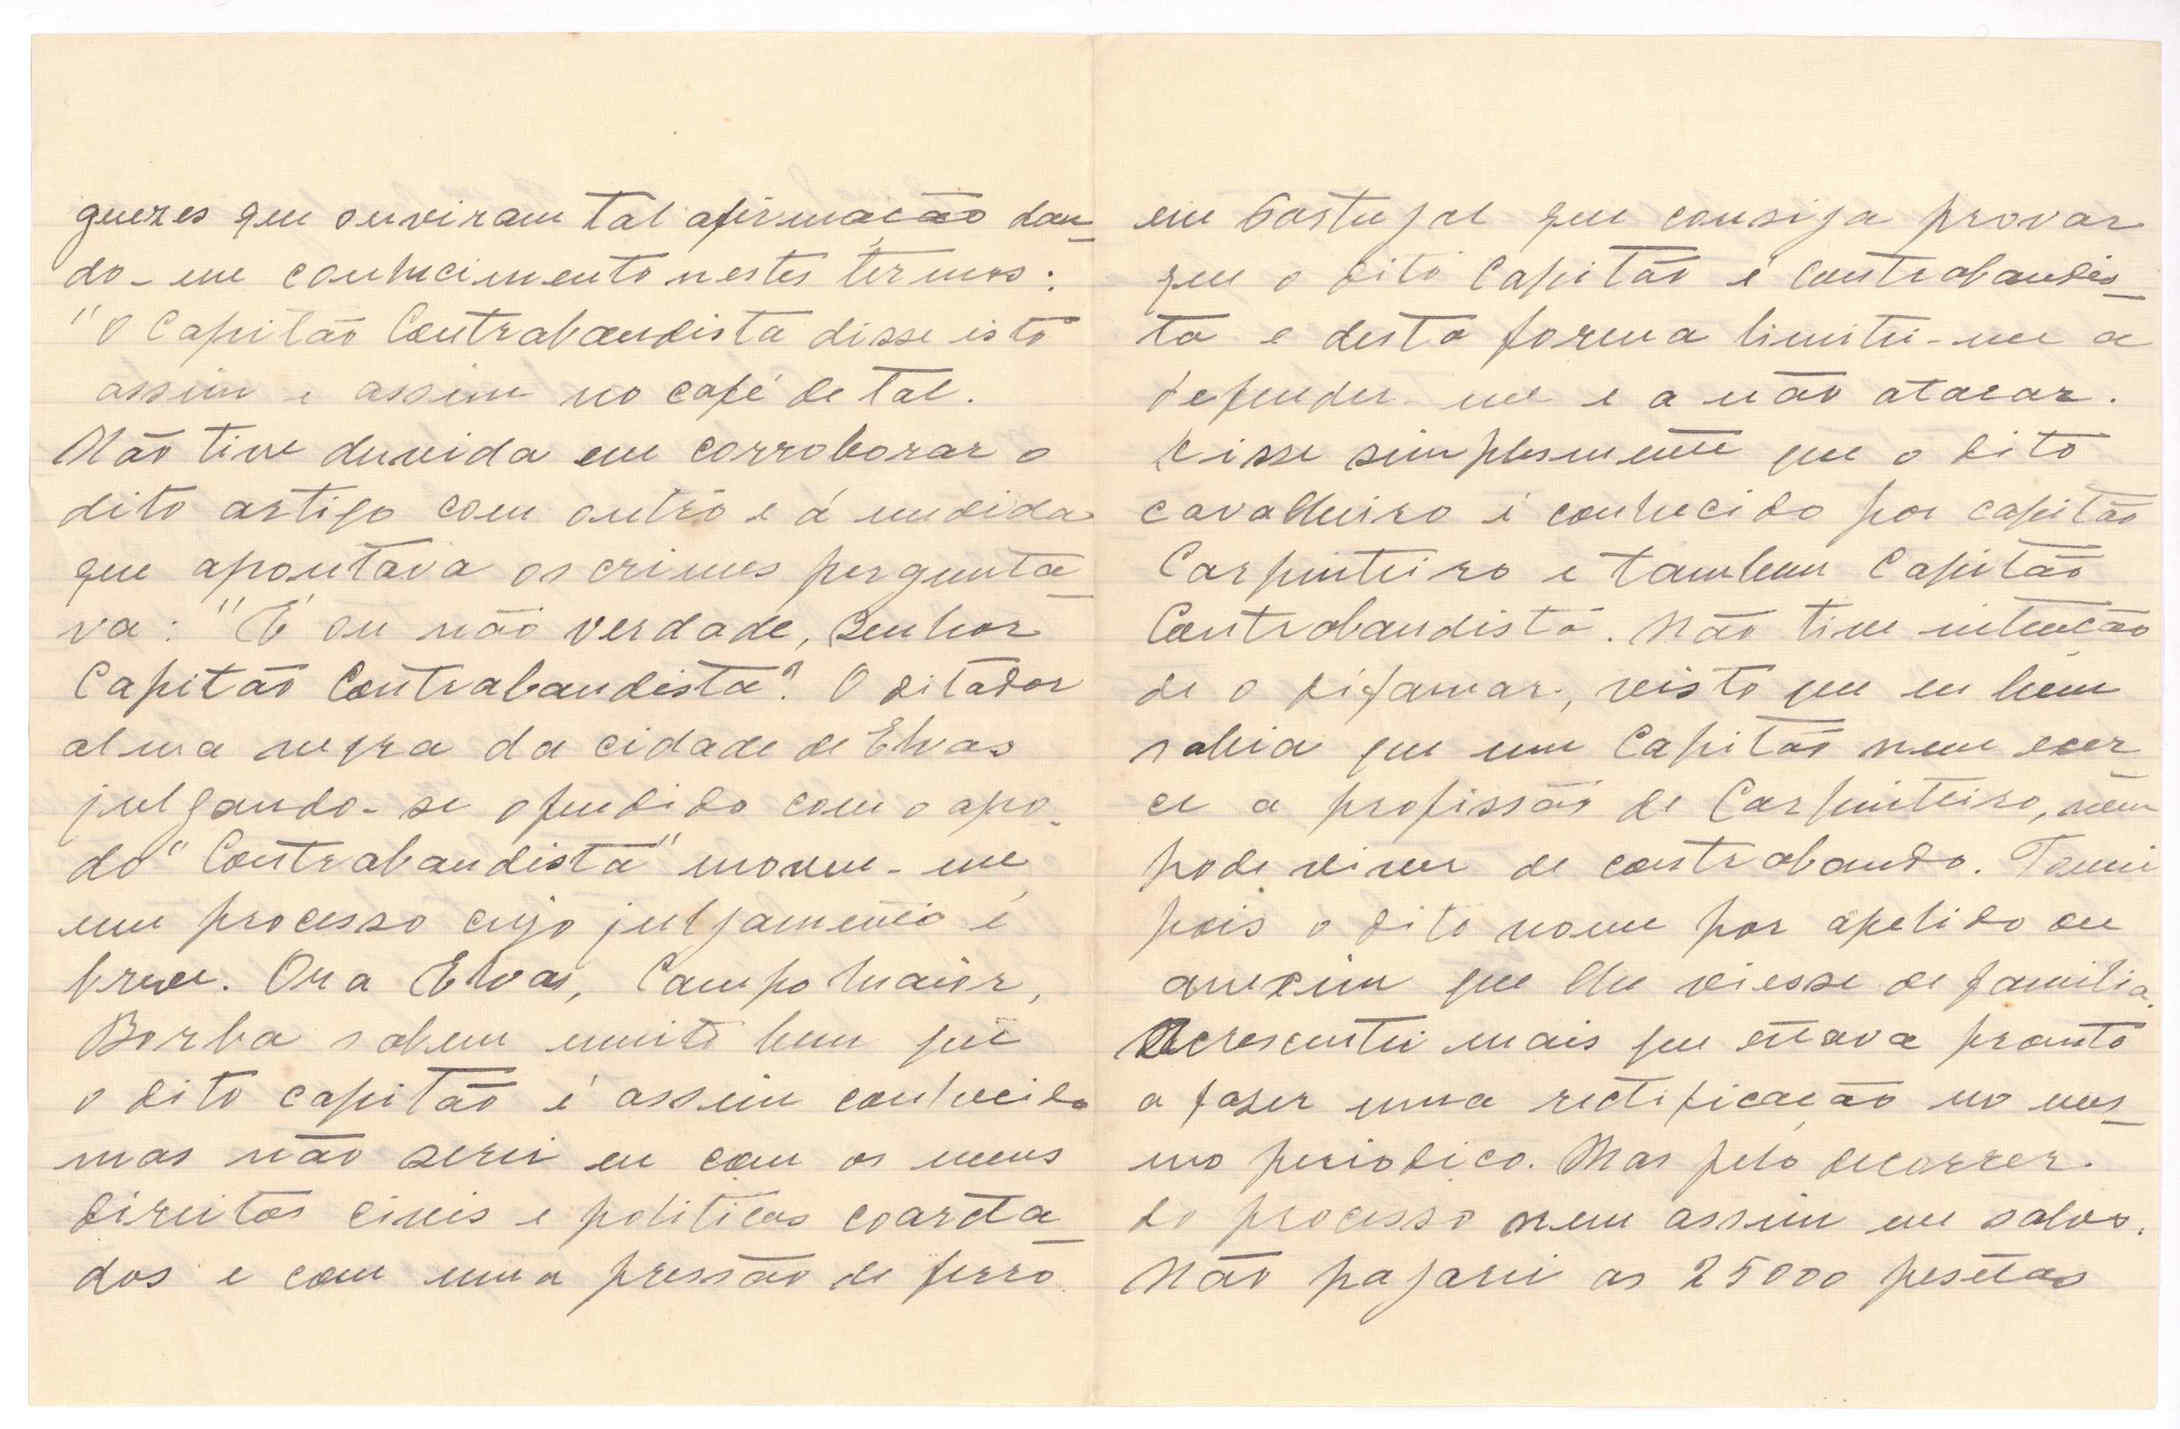 guezes que ouviram tal afirmação dan-
do-me conhecimento nestes termos:
"O Capitão Contrabandista disse isto
assim e assim no café de tal.
Não tive duvida em corroborar o
dito artigo com outro e á medida
que apontava os crimes pergunta-
va: "É ou não verdade, Senhor
Capitão Contrabandista"? O ditador
alma negra da cidade de Elvas
julgando-se ofendido com o apo-
do "Contrabandista" moveu-me
um processo cujo julgamento é
breve. Ora Elvas, Campo Maior,
Borba sabem muito bem que
o dito capitão é assim conhecido
mas não serei eu com os meus
direitos civis e politicos coarcta-
dos e com uma pressão de ferro
em Portugal que consiga provar
que o dito Capitão é Contrabandis-
ta e desta forma limitei-me a
defender-me e a não atacar.
Disse simplesmente que o dito
cavalheiro é conhecido por capitão
Carpinteiro e tambem Capitão
Contrabandista. Não tive intenção
de o difamar, visto que eu bem
sabia que um Capitão nem exer
ce a profissão de Carpinteiro, nem
pode viver de contrabando. Tomei
pois o dito nome por apelido ou
anexim que lhe viesse de familia.
Acrescentei mais que estava pronto
a fazer uma rectificação no mes-
mo periodico. Mas pelo decorrer
do processo nem assim me salvo.
Não pagarei as 25000 pesetas